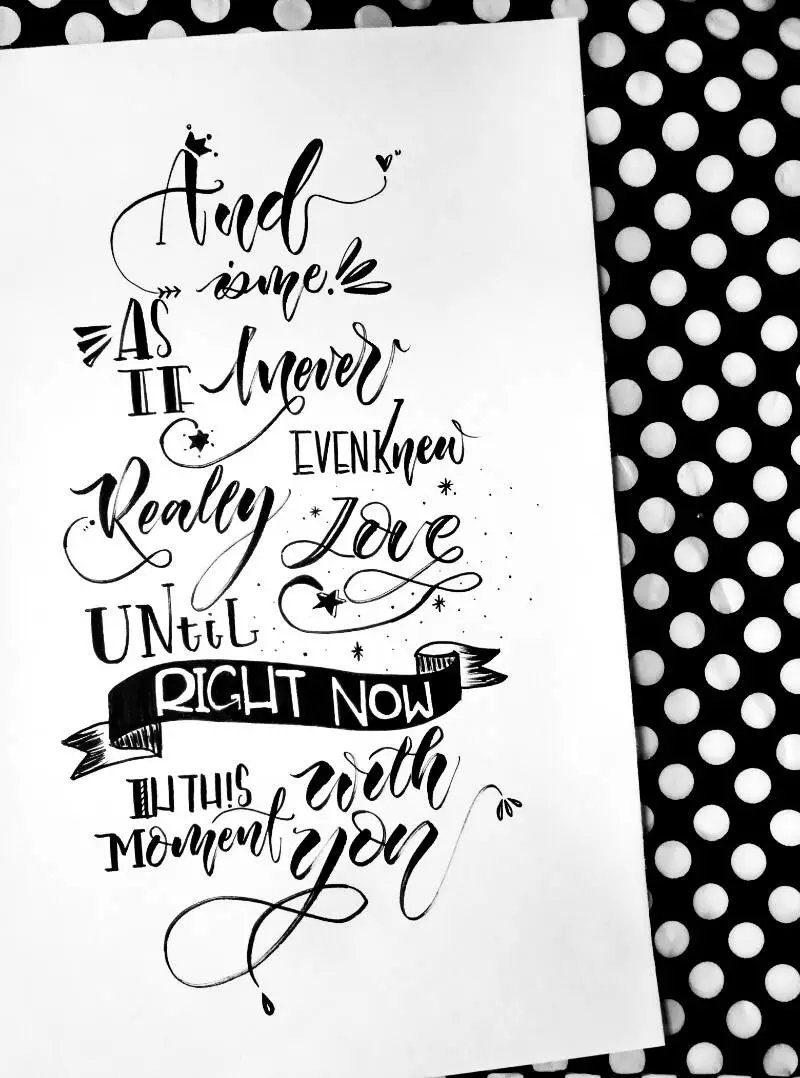 And
is me!
AS
IF
I never
EVEN Knew
Really Love
UNtiL
RIGHT NOW
IN THIS
Moment
with
you